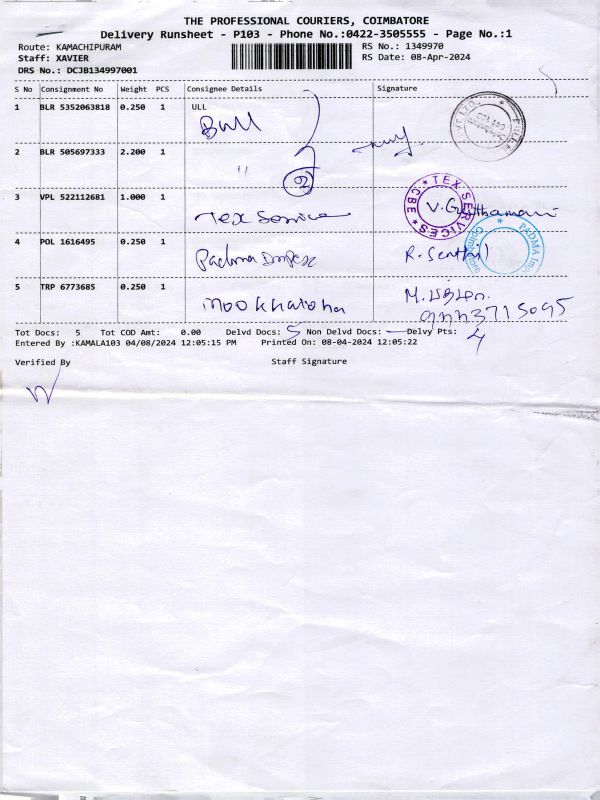 THE PROFESSIONAL COURIERS, COIMBATORE
Delivery Runsheet - P103 - Phone No.:0422-3505555 - Page No.:1
Route: KAMACHIPURAM RS No.: 1349970
Staff: XAVIER RS Date: 08-Apr-2024
DRS No.: DCJB134997001
S No Consignment No Weight PCS Consignee Details Signature
1 BLR 5352063818 0.250 1 ULL
Bull
2 BLR 505697333 2.200 1 "
(2)
3 VPL 522112681 1.000 1
Tex Service
TEX SERVICES * CBE *
4 POL 1616495 0.250 1
Padma Impex R. Senthil
PADMA Coimbatore
5 TRP 6773685 0.250 1
M.
Tot Docs: 5 Tot COD Amt: 0.00 Delvd Docs: 5 Non Delvd Docs: — Delvy Pts: 4
Entered By :KAMALA103 04/08/2024 12:05:15 PM Printed On: 08-04-2024 12:05:22
Verified By Staff Signature